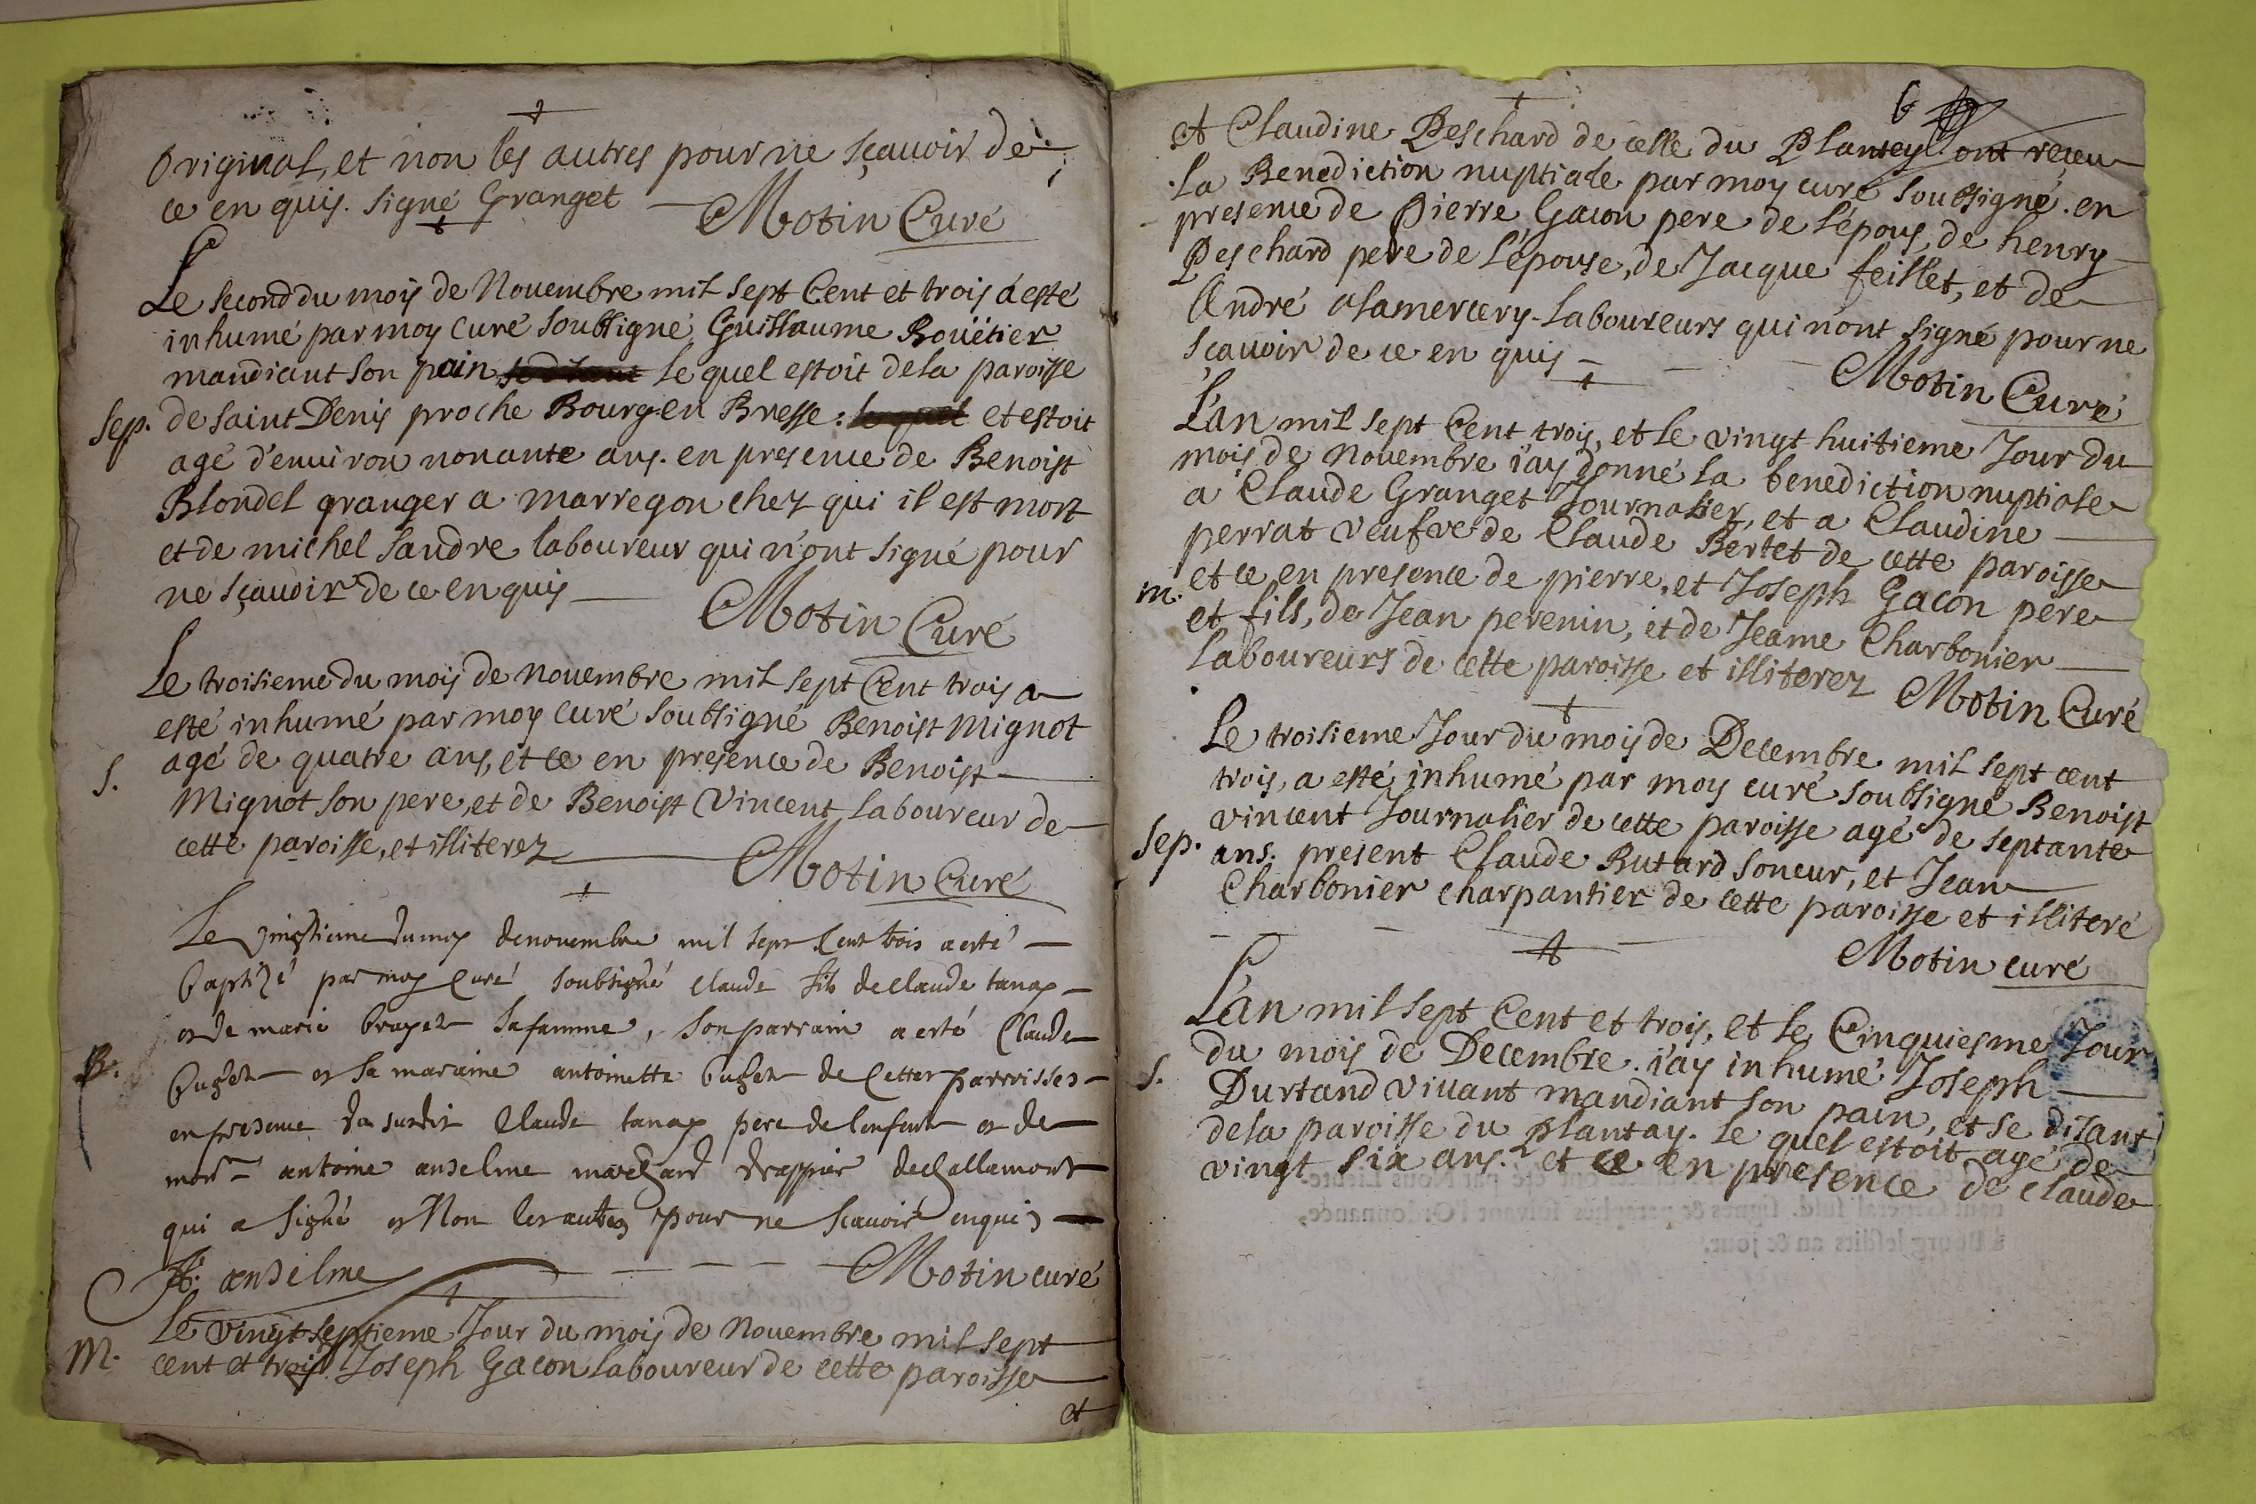 original, et non les autres pour ne sçauoir de
ce enquis. signé Granget Motin Curé
Le second du mois de Nouembre mil sept Cent et trois a esté
inhumé par moy Curé soubsigné Guillaume Rouëtier
mandiant son pain lequel estoit de la paroisse
sep. de saint Denis proche Bourg en Bresse: et estoit
agé d'enuiron nonante ans. en presence de Benoist
Blondel granger a marregon chez qui il est mort
et de michel sandre laboureur qui n'ont signé pour
ne sçauoir de ce enquis Motin Curé
Le troisieme du mois de nouembre mil sept Cent trois a
esté inhumé par moy Curé soubsigné Benoist Mignot
s. agé de quatre ans, et ce en presence de Benoist
Mignot son pere, et de Benoist Vincent laboureur de
cette paroisse, et illiterez Motin Curé
Le vingtieme du moy de nouembre mil sept Cent trois a esté
baptizé par moy Curé soubsigné Claude fils de Claude tanay
et de marie brayet sa famme, son parrain a esté Claude
B. buget et sa maraine antoinette buget de Cette parroisse
en presence du susdit Claude tanay pere de lenfent et de
monr antoine anselme marchand drappier de Challamont
qui a signé et Non les autres pour ne scauoir enquis
A. anselme Motin curé
Le vingt septieme Jour du mois de Nouembre mil sept
M. cent et trois Joseph Gacon laboureur de cette paroisse
et
6
et Claudine Peschard de celle du Plantey ont reçeu
la Benediction nuptiale par moy curé soubsigné. en
presence de Pierre Gacon pere de l'épous, de henry
Peschard pere de l'épouse, de Jacque feillet, et de
André alamercery laboureurs qui n'ont signé pour ne
sçauoir de ce enquis Motin Curé
L'an mil sept Cent trois, et le vingt huitieme Jour du
mois de Nouembre i'ay donné la benediction nuptiale
a Claude Granget Journalier, et a Claudine
perrat veufve de Claude Bertet de cette paroisse
m. et ce en presence de pierre, et Joseph Gacon pere
et fils, de Jean perenin, et de Jeame Charbonier
laboureurs de cette paroisse et illiterez Motin Curé
Le troisieme Jour du mois de Decembre mil sept cent
trois, a esté inhumé par moy curé soubsigné Benoist
vincent Journalier de cette paroisse agé de septante
sep. ans. present Claude Butard soneur, et Jean
Charbonier charpantier de cette paroisse et illiteré
Motin curé
L'an mil sept Cent et trois, et le Cinquiesme Jour
du mois de Decembre. i'ay inhumé Joseph
s. Durtand viuant mandiant son pain, et se disant
de la paroisse du Plantay. le quel estoit agé de
vingt six ans. et ce en presence de claude